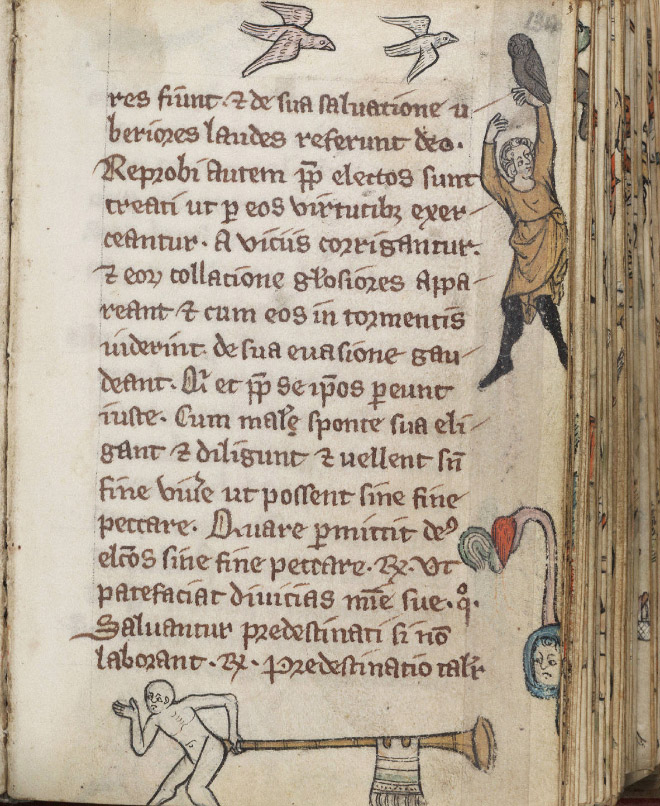 194
res fiunt ⁊ de sua saluatione u
beriores laudes referunt deo.
Reprobi autem pp̄ electos sunt
creati ut ꝑ eos virtutibꝫ exer
ceantur. A viciis corrigantur.
⁊ eoꝝ collacione gl̄osiores appa
reant ⁊ cum eos in tormentis
uiderint. de sua euasione gau
deant. Qr̄ et pp̄ se ip̄os ꝑeunt
iuste. Cum male sponte sua eli
gant ⁊ diligunt ⁊ uellent sn̄
fine viu͛e ut possent sine fine
peccare. Quare ꝑmittit de⁹
elc̄os sine fine peccare. ℞. Vt
patefaciat diuicias mīe sue. q̊.
Saluantur predestinati si nō
laborant. ℞. Predestinatio talr̄